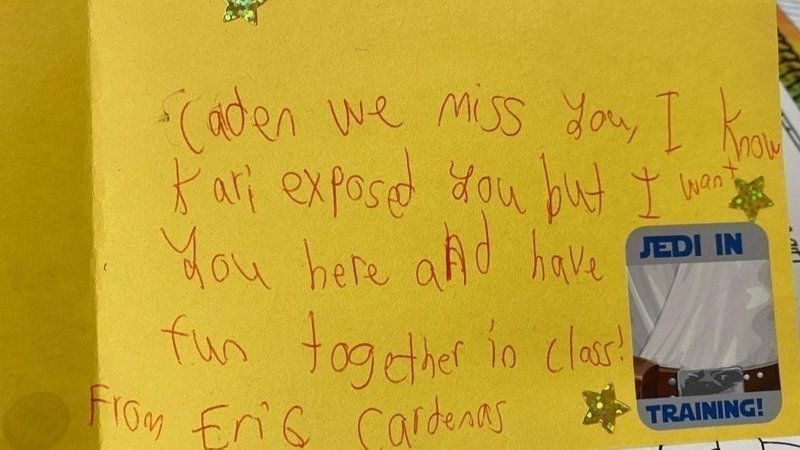 Caden we miss you, I know
Kari exposed you but I want
you here and have
fun together in class!
From Eric Cardenas
JEDI IN
TRAINING!